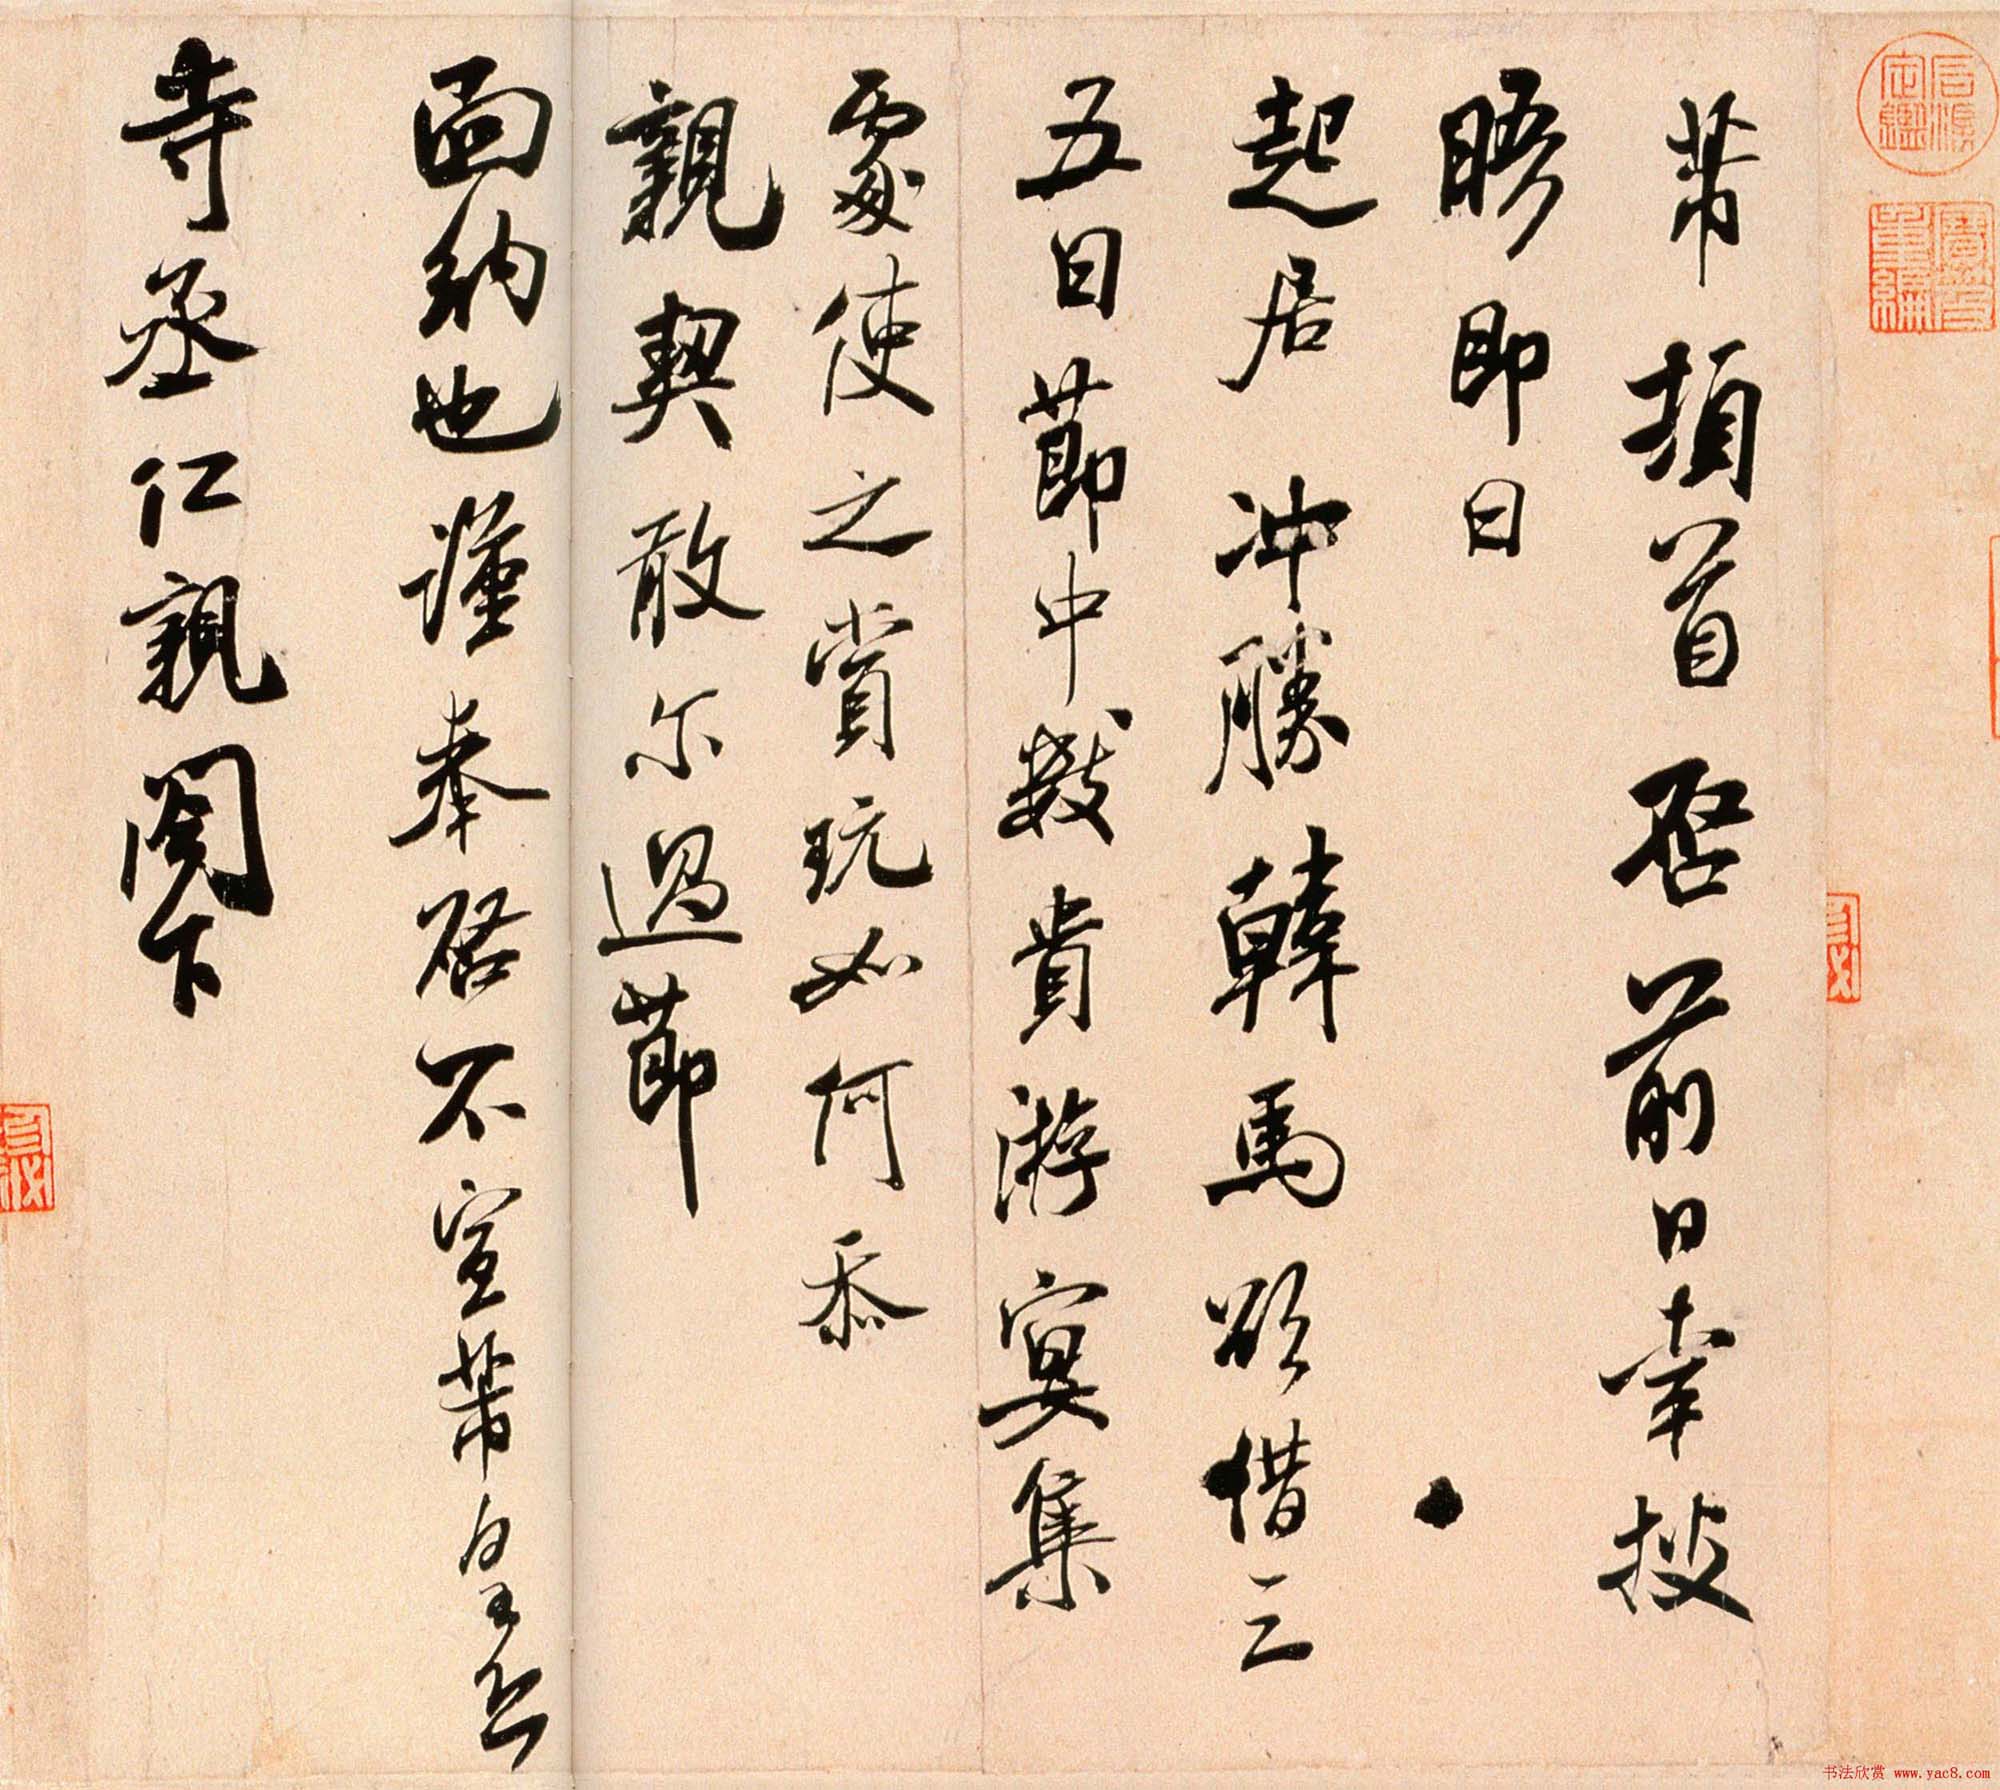 石渠定鑑
寶笈重編
芾頓首啓前日幸披
晤即日
起居冲勝韓馬欲借三
五日節中數貴游宴集
處使之賞玩如何忝
親契敢尔過節
面納也謹奉啓不宣芾皇恐
寺丞仁親閣下
书法欣赏 www.yac8.com